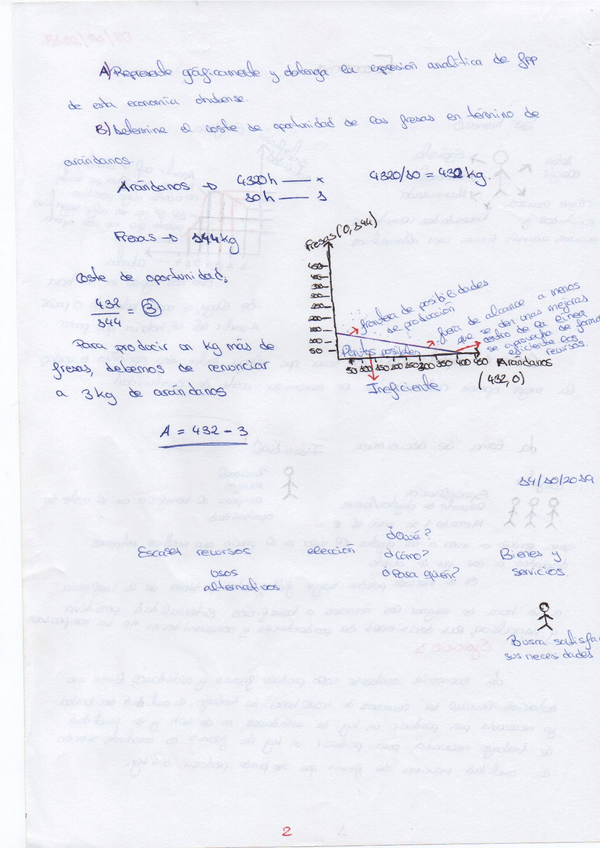 A) Represente gráficamente y obtenga la expresión analítica de fpp
de esta economía onubense.
B) Determine el coste de oportunidad de las fresas en término de
arándanos
Arándanos → 4320h — x
10h — 1
4320/10 = 432 kg.
Fresas → 144 kg
Coste de oportunidad;
432/144 = 3
Para producir un kg más de
fresas, debemos de renunciar
a 3 kg de arándanos
A = 432 - 3
Fresas (0, 144)
frontera de posibilidades
de producción
fuera de alcance a menos
que se den unas mejoras
dentro de la línea
se aprovecha de forma
eficiente los
recursos.
Puntos posibles
50 100 150 200 250 300 350 400 450 Arándanos
Ineficiente
(432, 0)
14/10/2019
Escasez recursos
usos
alternativos
elección
¿Qué?
¿Cómo?
¿Para quién?
Bienes y
servicios
Busca satisfa
sus necesidades
2